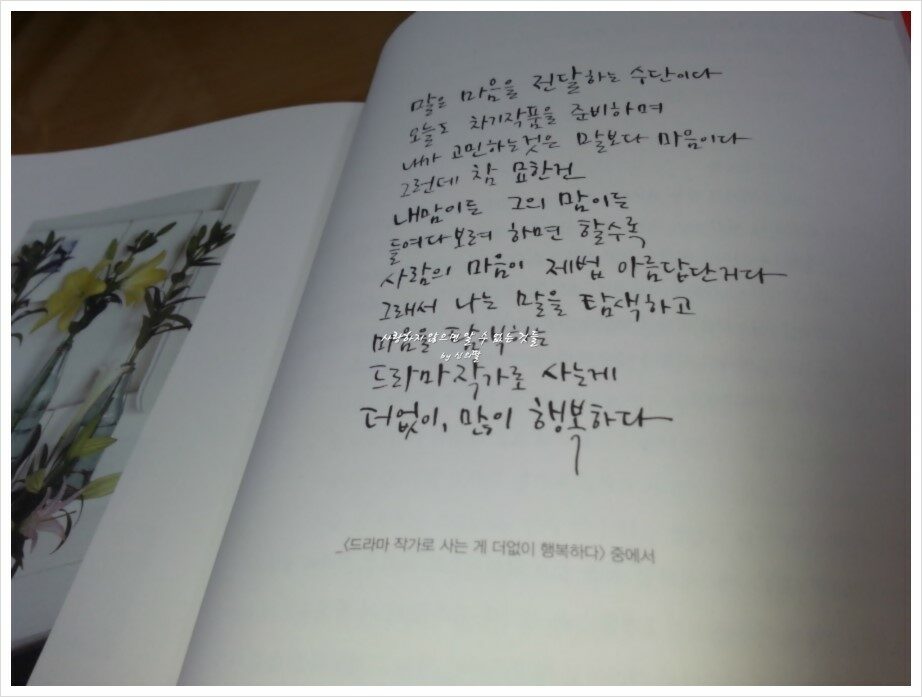 말은 마음을 전달하는 수단이다
오늘도 차기작품을 준비하며
내가 고민하는것은 말보다 마음이다
그런데 참 묘한건
내맘이든 그의 맘이든
들여다보려 하면 할수록
사람의 마음이 제법 아름답단거다
그래서 나는 말을 탐색하고
마음을 탐색하는
사랑하지 않으면 알 수 없는 것들
by
드라마작가로 사는게
더없이, 많이 행복하다
_<드라마 작가로 사는 게 더없이 행복하다> 중에서